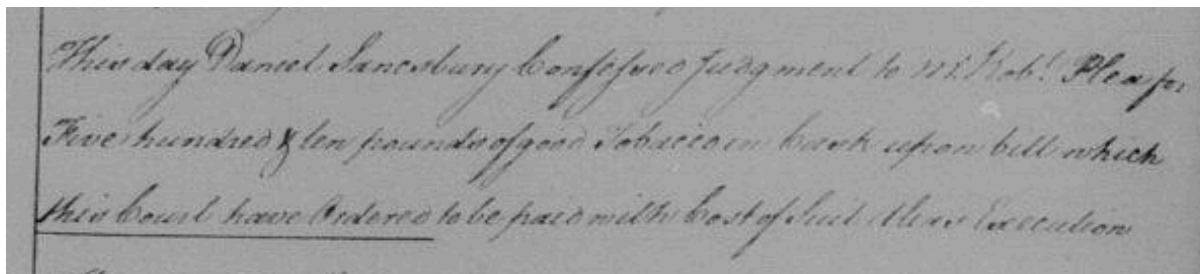 This day Daniel Sanesbury Confessed Judgment to Mr. Robt. Plea for
Five hundred & ten pounds of good Tobacco in Cask upon bill which
this Court have Ordered to be paid with Cost of Suit Alias Execution